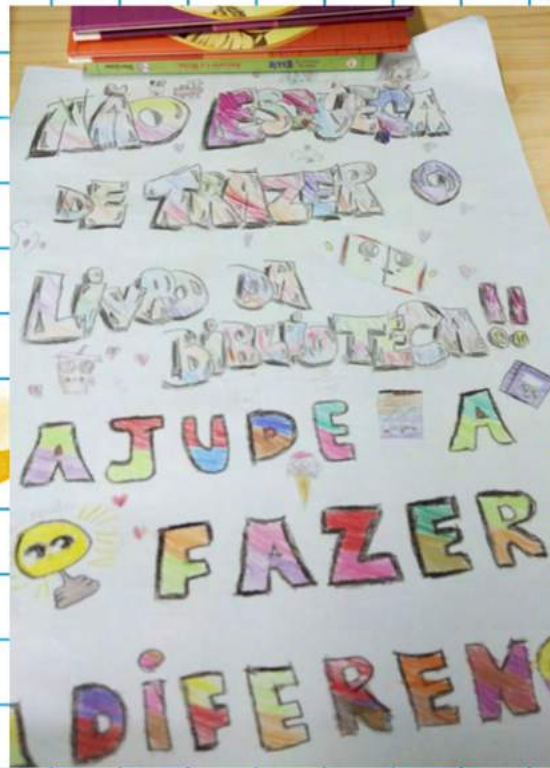 NÃO ESQUEÇA
DE TRAZER
LiVRO DA
BiBLiOTECA!!
AJUDE A
FAZER
A DiFEREN